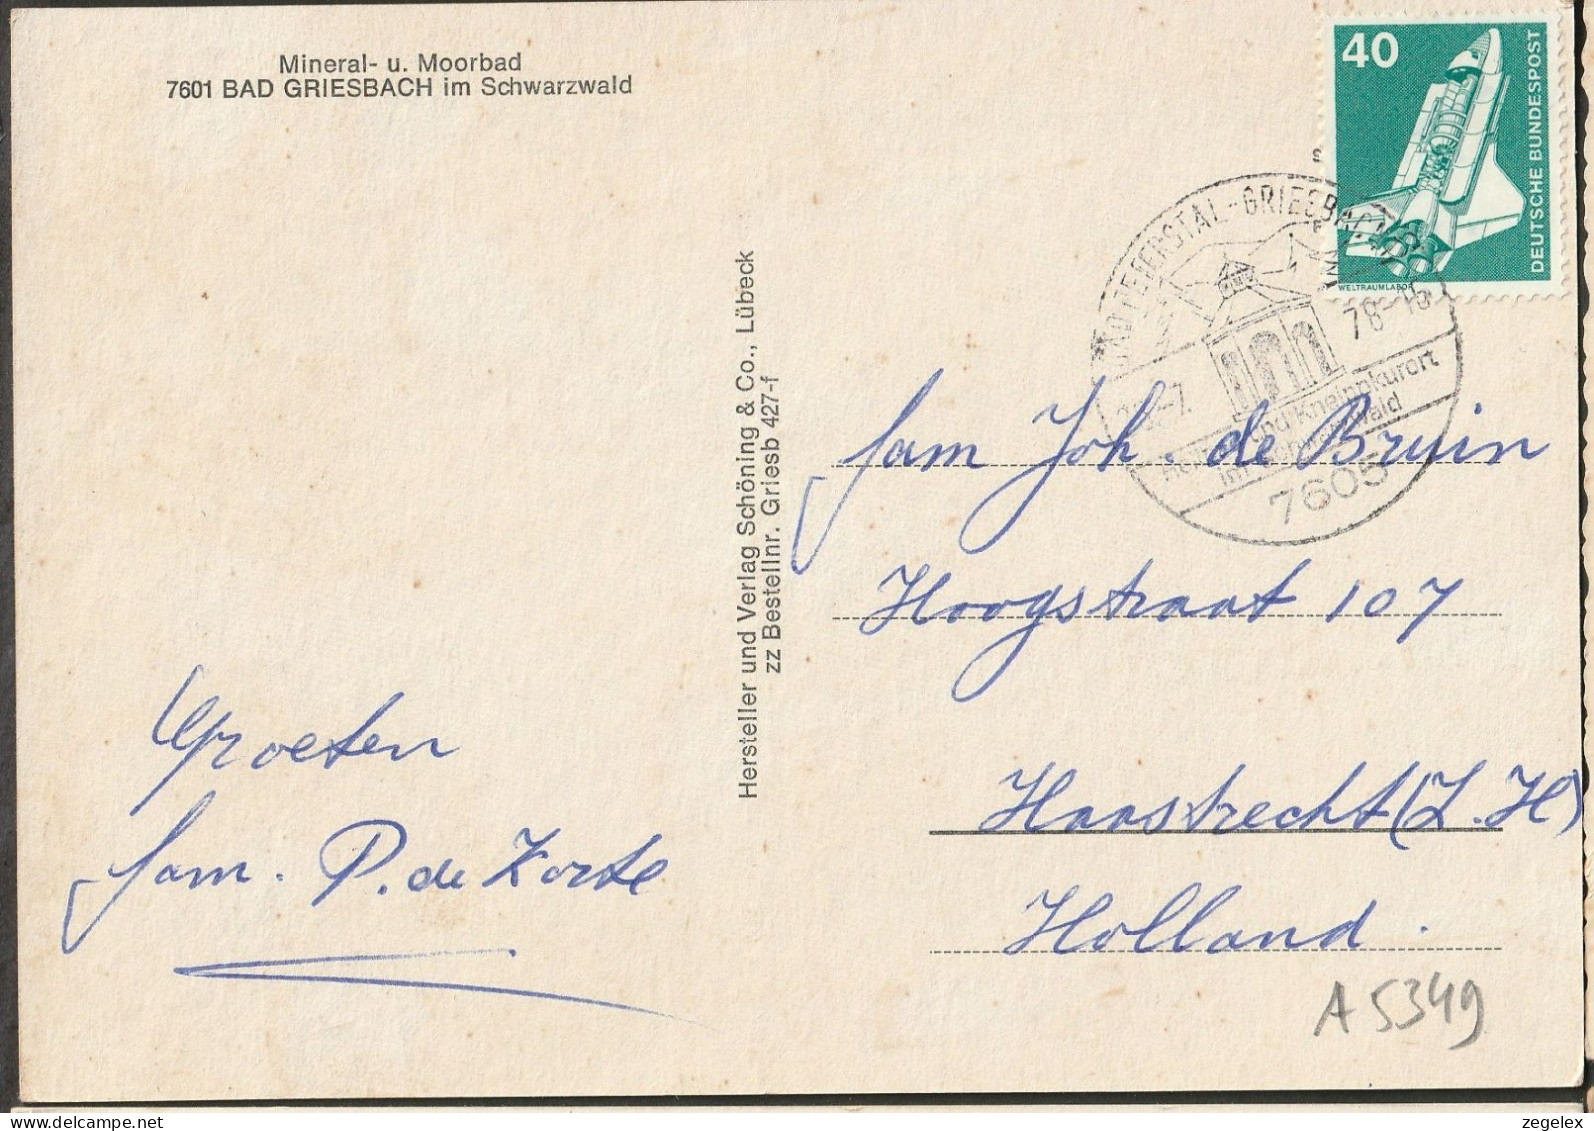 Mineral- u. Moorbad
7601 BAD GRIESBACH im Schwarzwald
40
DEUTSCHE BUNDESPOST
WELTRAUMLABOR
78-15
und Kneippkurort
7605
Hersteller und Verlag Schöning & Co., Lübeck
zz Bestellnr. Griesb 427-f
fam Joh. de Bruin
Hoogstraat 107
Haastrecht (Z.H)
Holland.
Groeten
fam. P. de Korte
A 5349
www.delcampe.net
zegelex